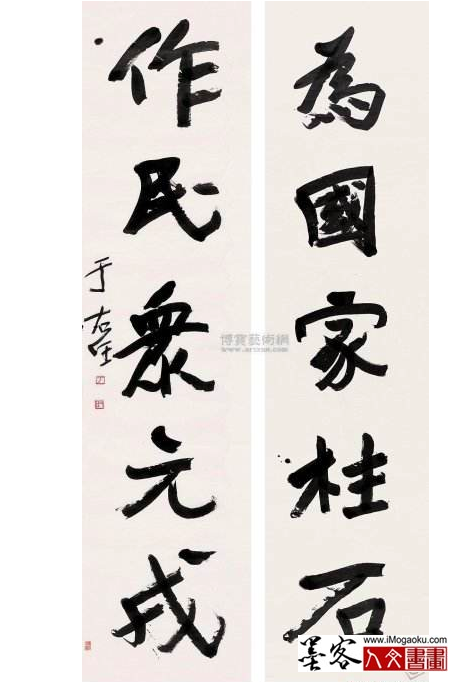 為國家桂石
作民衆元戎
于右任
博寶藝術網
www.artxun.com
墨客
www.iMogaoku.com
人文書畫